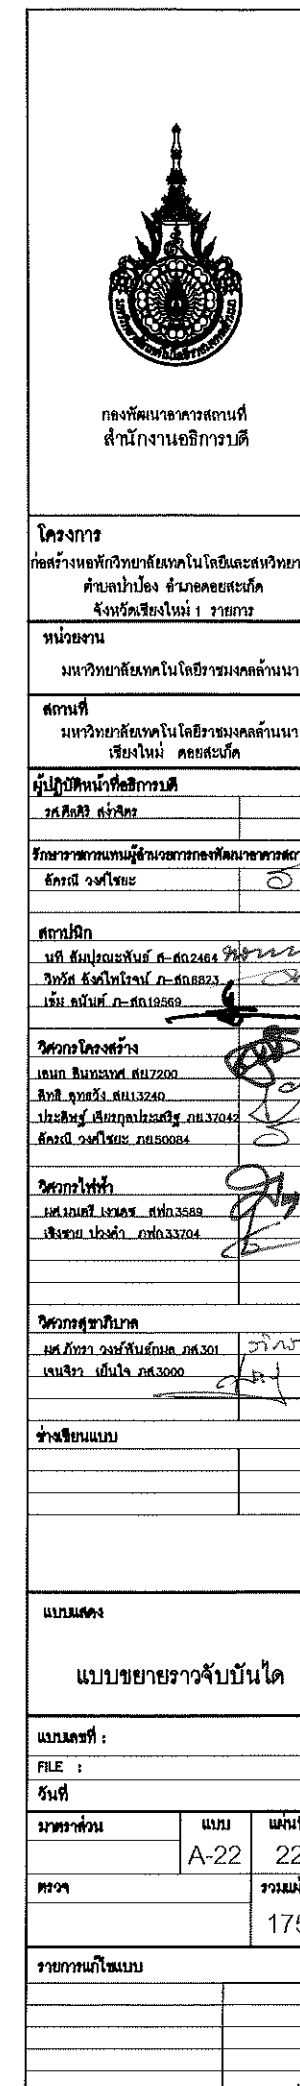 กองพัฒนาอาคารสถานที่
สำนักงานอธิการบดี
โครงการ
ก่อสร้างหอพักวิทยาลัยเทคโนโลยีและสหวิทยา
ตำบลป่าป้อง อำเภอดอยสะเก็ด
จังหวัดเชียงใหม่ 1 รายการ
หน่วยงาน
มหาวิทยาลัยเทคโนโลยีราชมงคลล้านนา
สถานที่
มหาวิทยาลัยเทคโนโลยีราชมงคลล้านนา
เชียงใหม่ ดอยสะเก็ด
ผู้ปฏิบัติหน้าที่อธิการบดี
รศ.ศีลศิริ สง่าจิตร
รักษาราชการแทนผู้อำนวยการกองพัฒนาอาคารสถา
อัครณี วงศ์ไชยะ
สถาปนิก
นที สัมปุรณะพันธ์ ส-สถ2464
วิทวัส ภ-สถ8823
ภ-สถ19569
วิศวกรโครงสร้าง
เสนก สินทะเทศ สย7200
สิทธิ สย13240
ประดิษฐ์ เจียรกุลประเสริฐ ภย37042
อัครณี วงศ์ไชยะ ภย50084
วิศวกรไฟฟ้า
ผศ.มนตรี เงาเดช สฟก3589
เชิงชาย ปวงคำ ภฟก33704
วิศวกรสุขาภิบาล
ผศ.ภัทรา วงษ์พันธ์กมล ภส.301
เจนจิรา เป็นใจ ภส.3000
ช่างเขียนแบบ
แบบแสดง
แบบขยายราวจับบันได
แบบเลขที่ :
FILE :
วันที่
มาตราส่วน แบบ แผ่นที่
A-22 22
ตรวจ รวมแผ่
175
รายการแก้ไขแบบ